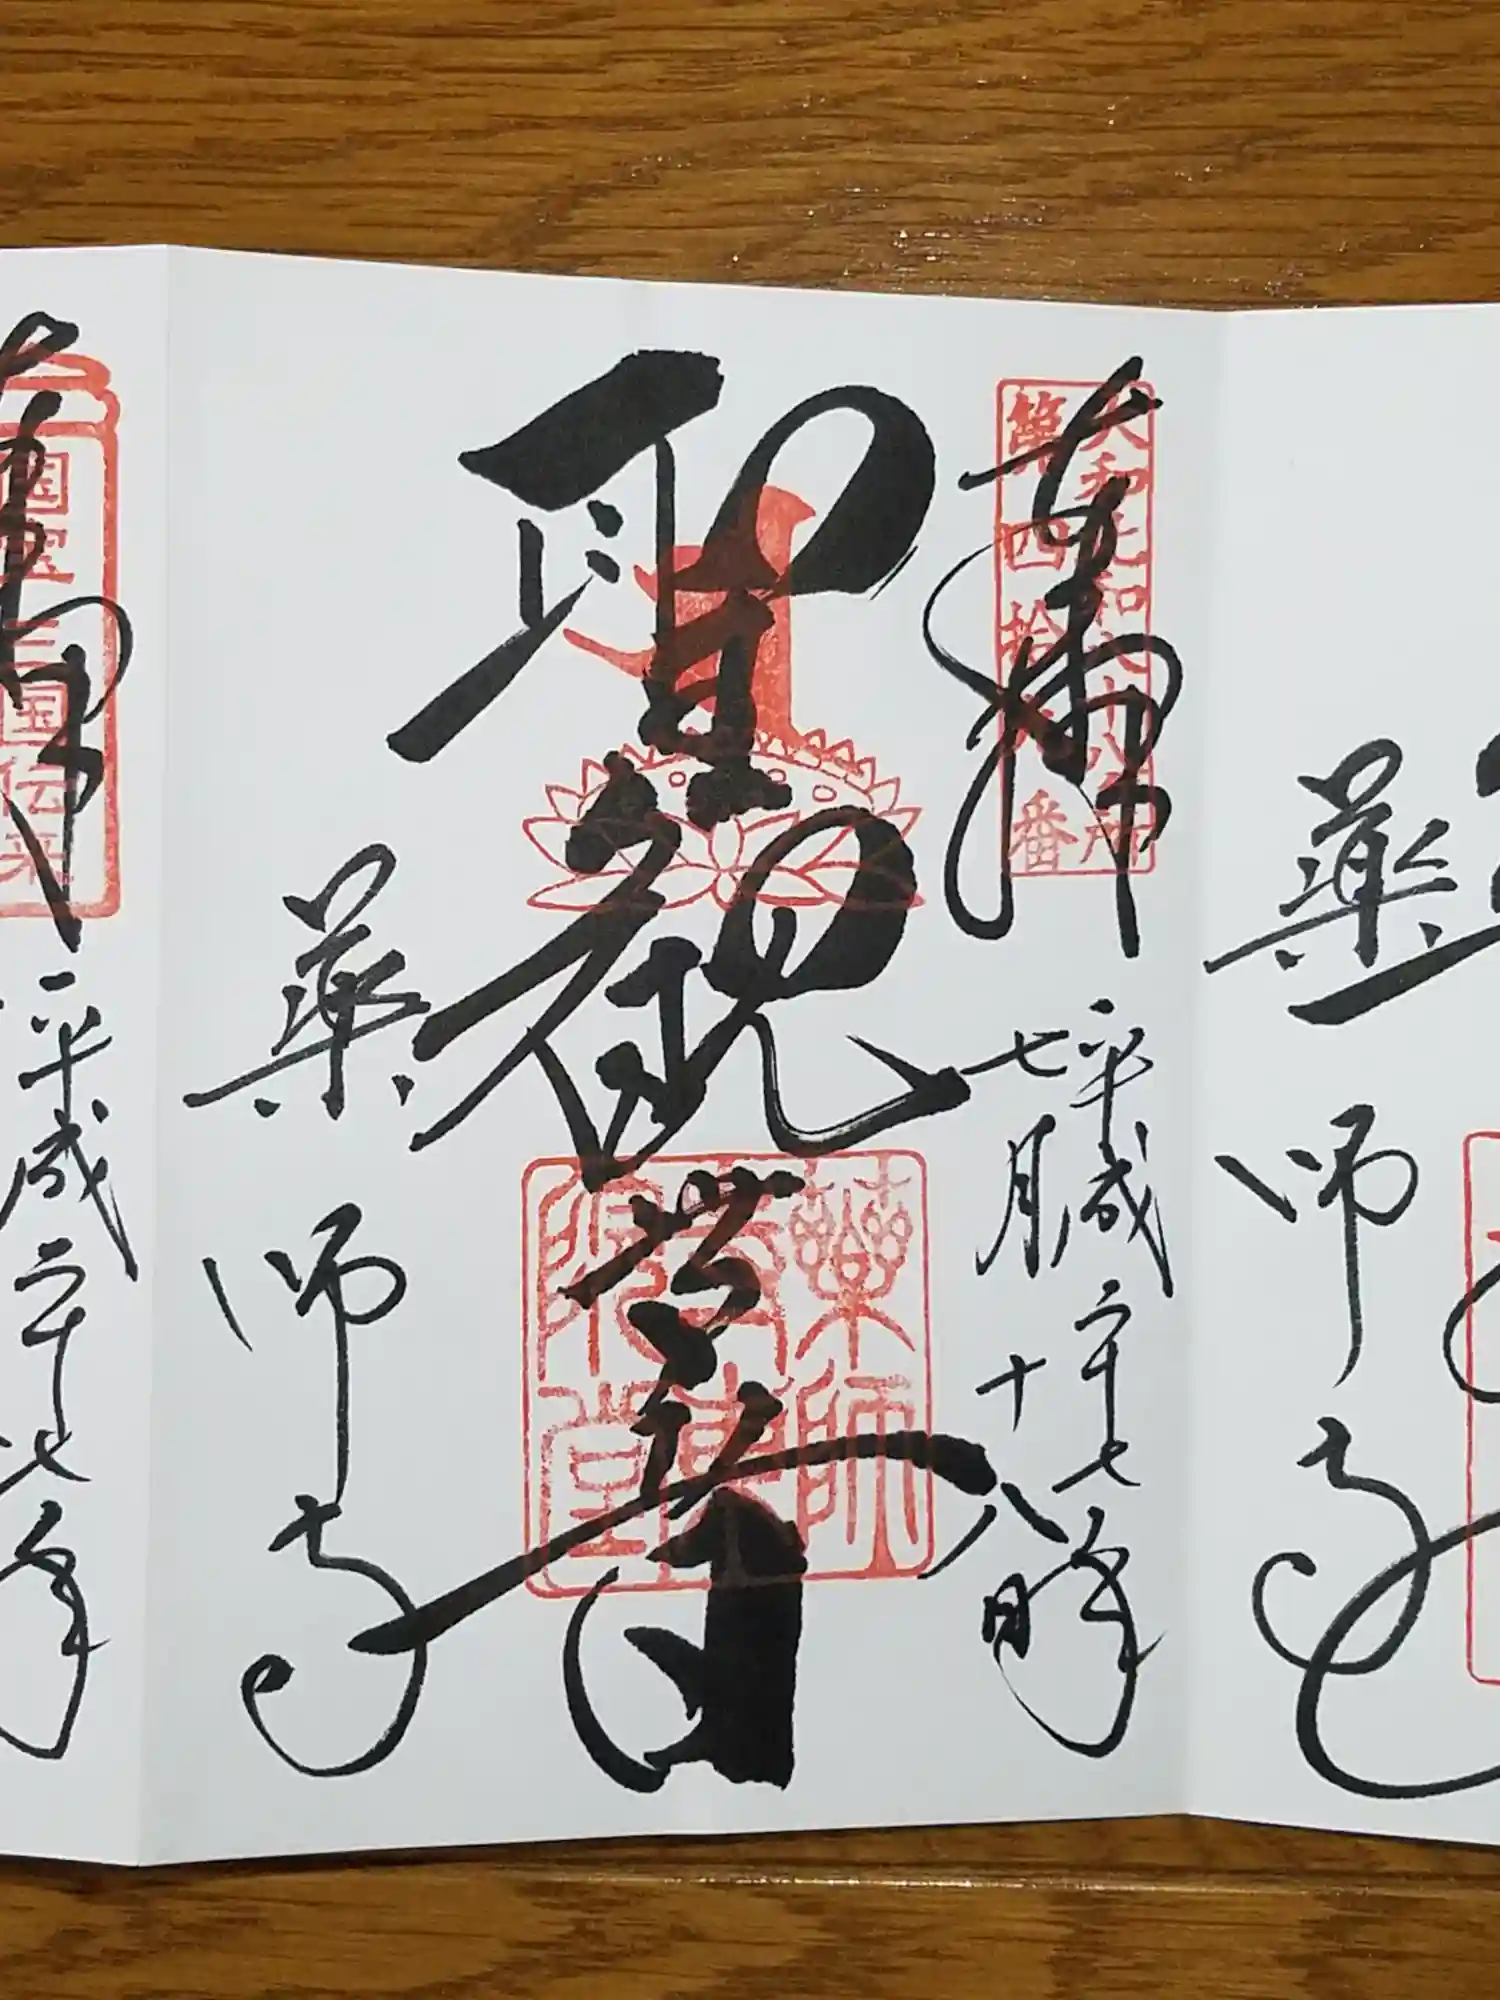 奉拝
大和北部八十八ヶ所
第四拾六番
平成二十七年
七月十八日
聖観世音
薬師寺
薬師寺
東院堂
薬師寺
奉拝
国宝
三国伝来
平成二十七年